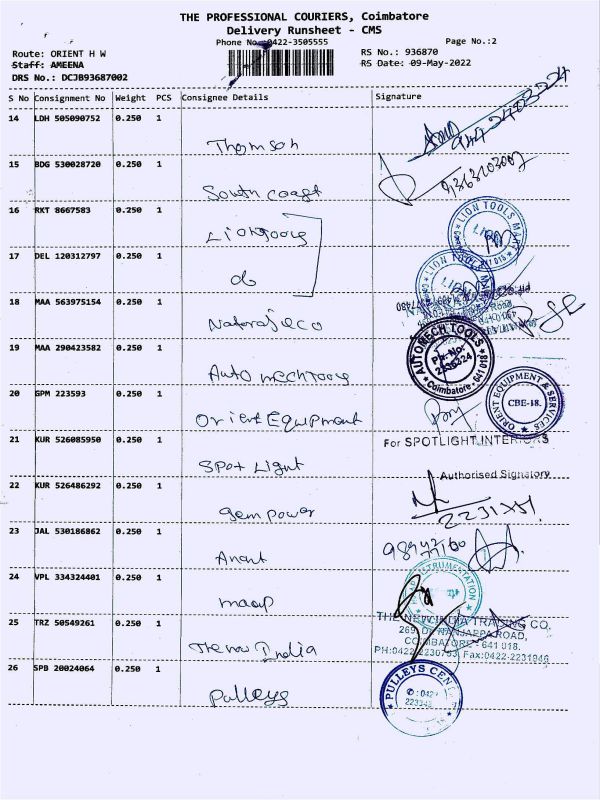 THE PROFESSIONAL COURIERS, Coimbatore
Delivery Runsheet - CMS
Phone No. 0422-3505555 Page No.:2
Route: ORIENT H W RS No.: 936870
Staff: AMEENA RS Date: 09-May-2022
DRS No.: DCJB93687002
S No Consignment No Weight PCS Consignee Details Signature
14 LDH 505090752 0.250 1
Thomson
15 BDG 530028720 0.250 1
9363103007
South coast
16 RKT 8667583 0.250 1
LION TOOLS MART
Liontools
17 DEL 120312797 0.250 1
LION
do
18 MAA 563975154 0.250 1
Nataraj &co
19 MAA 290423582 0.250 1
AUTOMECH TOOLS
Ph: No:
2236324
Coimbatore - 641 018.
Automechtools
20 GPM 223593 0.250 1
ORIENT EQUIPMENT & SERVICES
CBE-18.
Orient Equipment
21 KUR 526085950 0.250 1
For SPOTLIGHT INTERIORS
Spot Light
Authorised Signatory
22 KUR 526486292 0.250 1
gem power
23 JAL 530186862 0.250 1
Anant
24 VPL 334324401 0.250 1
INSTRUMENTATION
maap
25 TRZ 50549261 0.250 1
THE NEW INDIA TRADING CO.
269, Dr. NANJAPPA ROAD,
COIMBATORE - 641 018.
Fax:0422-2231946
The new India
26 SPB 20024064 0.250 1
PULLEYS
Pulleys